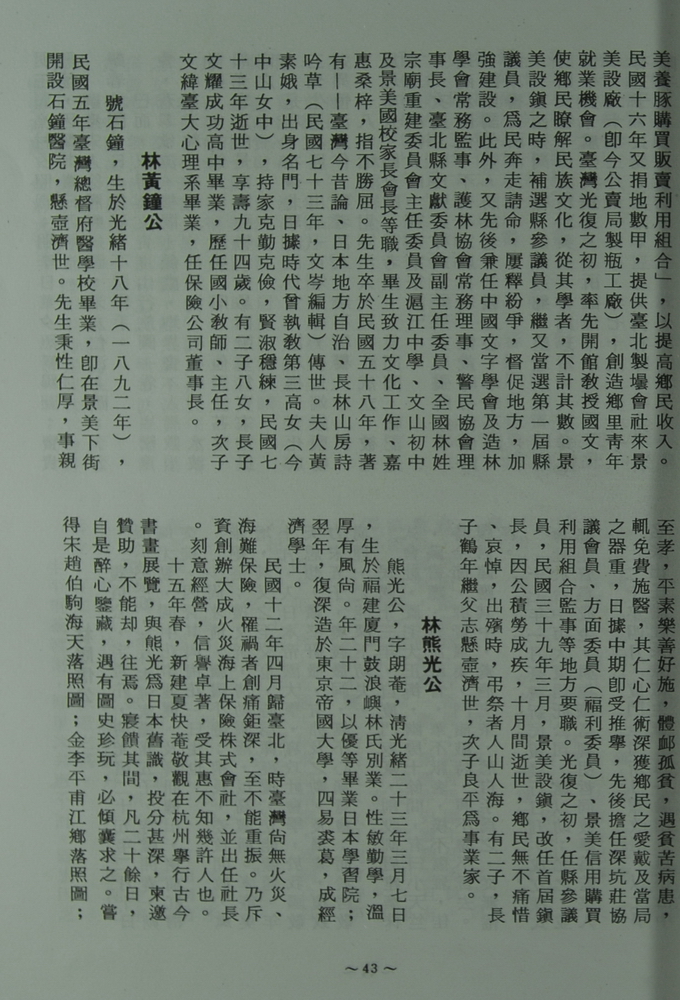 美養豚購買販賣利用組合」，以提高鄉民收入。
民國十六年又捐地數甲，提供臺北製壜會社來景
美設廠（卽今公賣局製瓶工廠），創造鄉里靑年
就業機會。臺灣光復之初，率先開館敎授國文，
使鄉民瞭解民族文化，從其學者，不計其數。景
美設鎭之時，補選縣參議員，繼又當選第一屆縣
議員，爲民奔走請命，屢釋紛爭，督促地方，加
強建設。此外，又先後兼任中國文字學會及造林
學會常務監事、護林協會常務理事、警民協會理
事長、臺北縣文獻委員會副主任委員、全國林姓
宗廟重建委員會主任委員及滬江中學、文山初中
及景美國校家長會長等職，畢生致力文化工作、嘉
惠桑梓，指不勝屈。先生卒於民國五十八年，著
有——臺灣今昔論、日本地方自治、長林山房詩
吟草（民國七十三年，文岑編輯）傳世。夫人黃
素娥，出身名門，日據時代曾執敎第三高女（今
中山女中），持家克勤克儉，賢淑穩練，民國七
十三年逝世，享壽九十四歲。有二子八女，長子
文耀成功高中畢業，歷任國小敎師、主任，次子
文緯臺大心理系畢業，任保險公司董事長。
林黃鐘公
號石鐘，生於光緒十八年（一八九二年），
民國五年臺灣總督府醫學校畢業，卽在景美下街
開設石鐘醫院，懸壺濟世。先生秉性仁厚，事親
至孝，平素樂善好施，體卹孤貧，遇貧苦病患，
輒免費施醫，其仁心仁術深獲鄉民之愛戴及當局
之器重，日據中期卽受推擧，先後擔任深坑莊協
議會員、方面委員（福利委員）、景美信用購買
利用組合監事等地方要職。光復之初，任縣參議
員，民國三十九年三月，景美設鎭，改任首屆鎭
長，因公積勞成疾，十月間逝世，鄉民無不痛惜
、哀悼，出殯時，弔祭者人山人海。有二子，長
子鶴年繼父志懸壺濟世，次子良平爲事業家。
林熊光公
熊光公，字朗菴，淸光緒二十三年三月七日
，生於福建廈門鼓浪嶼林氏別業。性敏勤學，溫
厚有風尙。年二十二，以優等畢業日本學習院；
翌年，復深造於東京帝國大學，四易裘葛，成經
濟學士。
民國十二年四月歸臺北，時臺灣尙無火災、
海難保險，罹禍者創痛鉅深，至不能重振。乃斥
資創辦大成火災海上保險株式會社，並出任社長
。刻意經營，信譽卓著，受其惠不知幾許人也。
十五年春，新建夏快菴敬觀在杭州舉行古今
書畫展覽，與熊光爲日本舊識，投分甚深，柬邀
贊助，不能却，往焉。寢饋其間，凡二十餘日，
自是醉心鑒藏，遇有圖史珍玩，必傾囊求之。嘗
得宋趙伯駒海天落照圖；金李平甫江鄉落照圖；
～43～